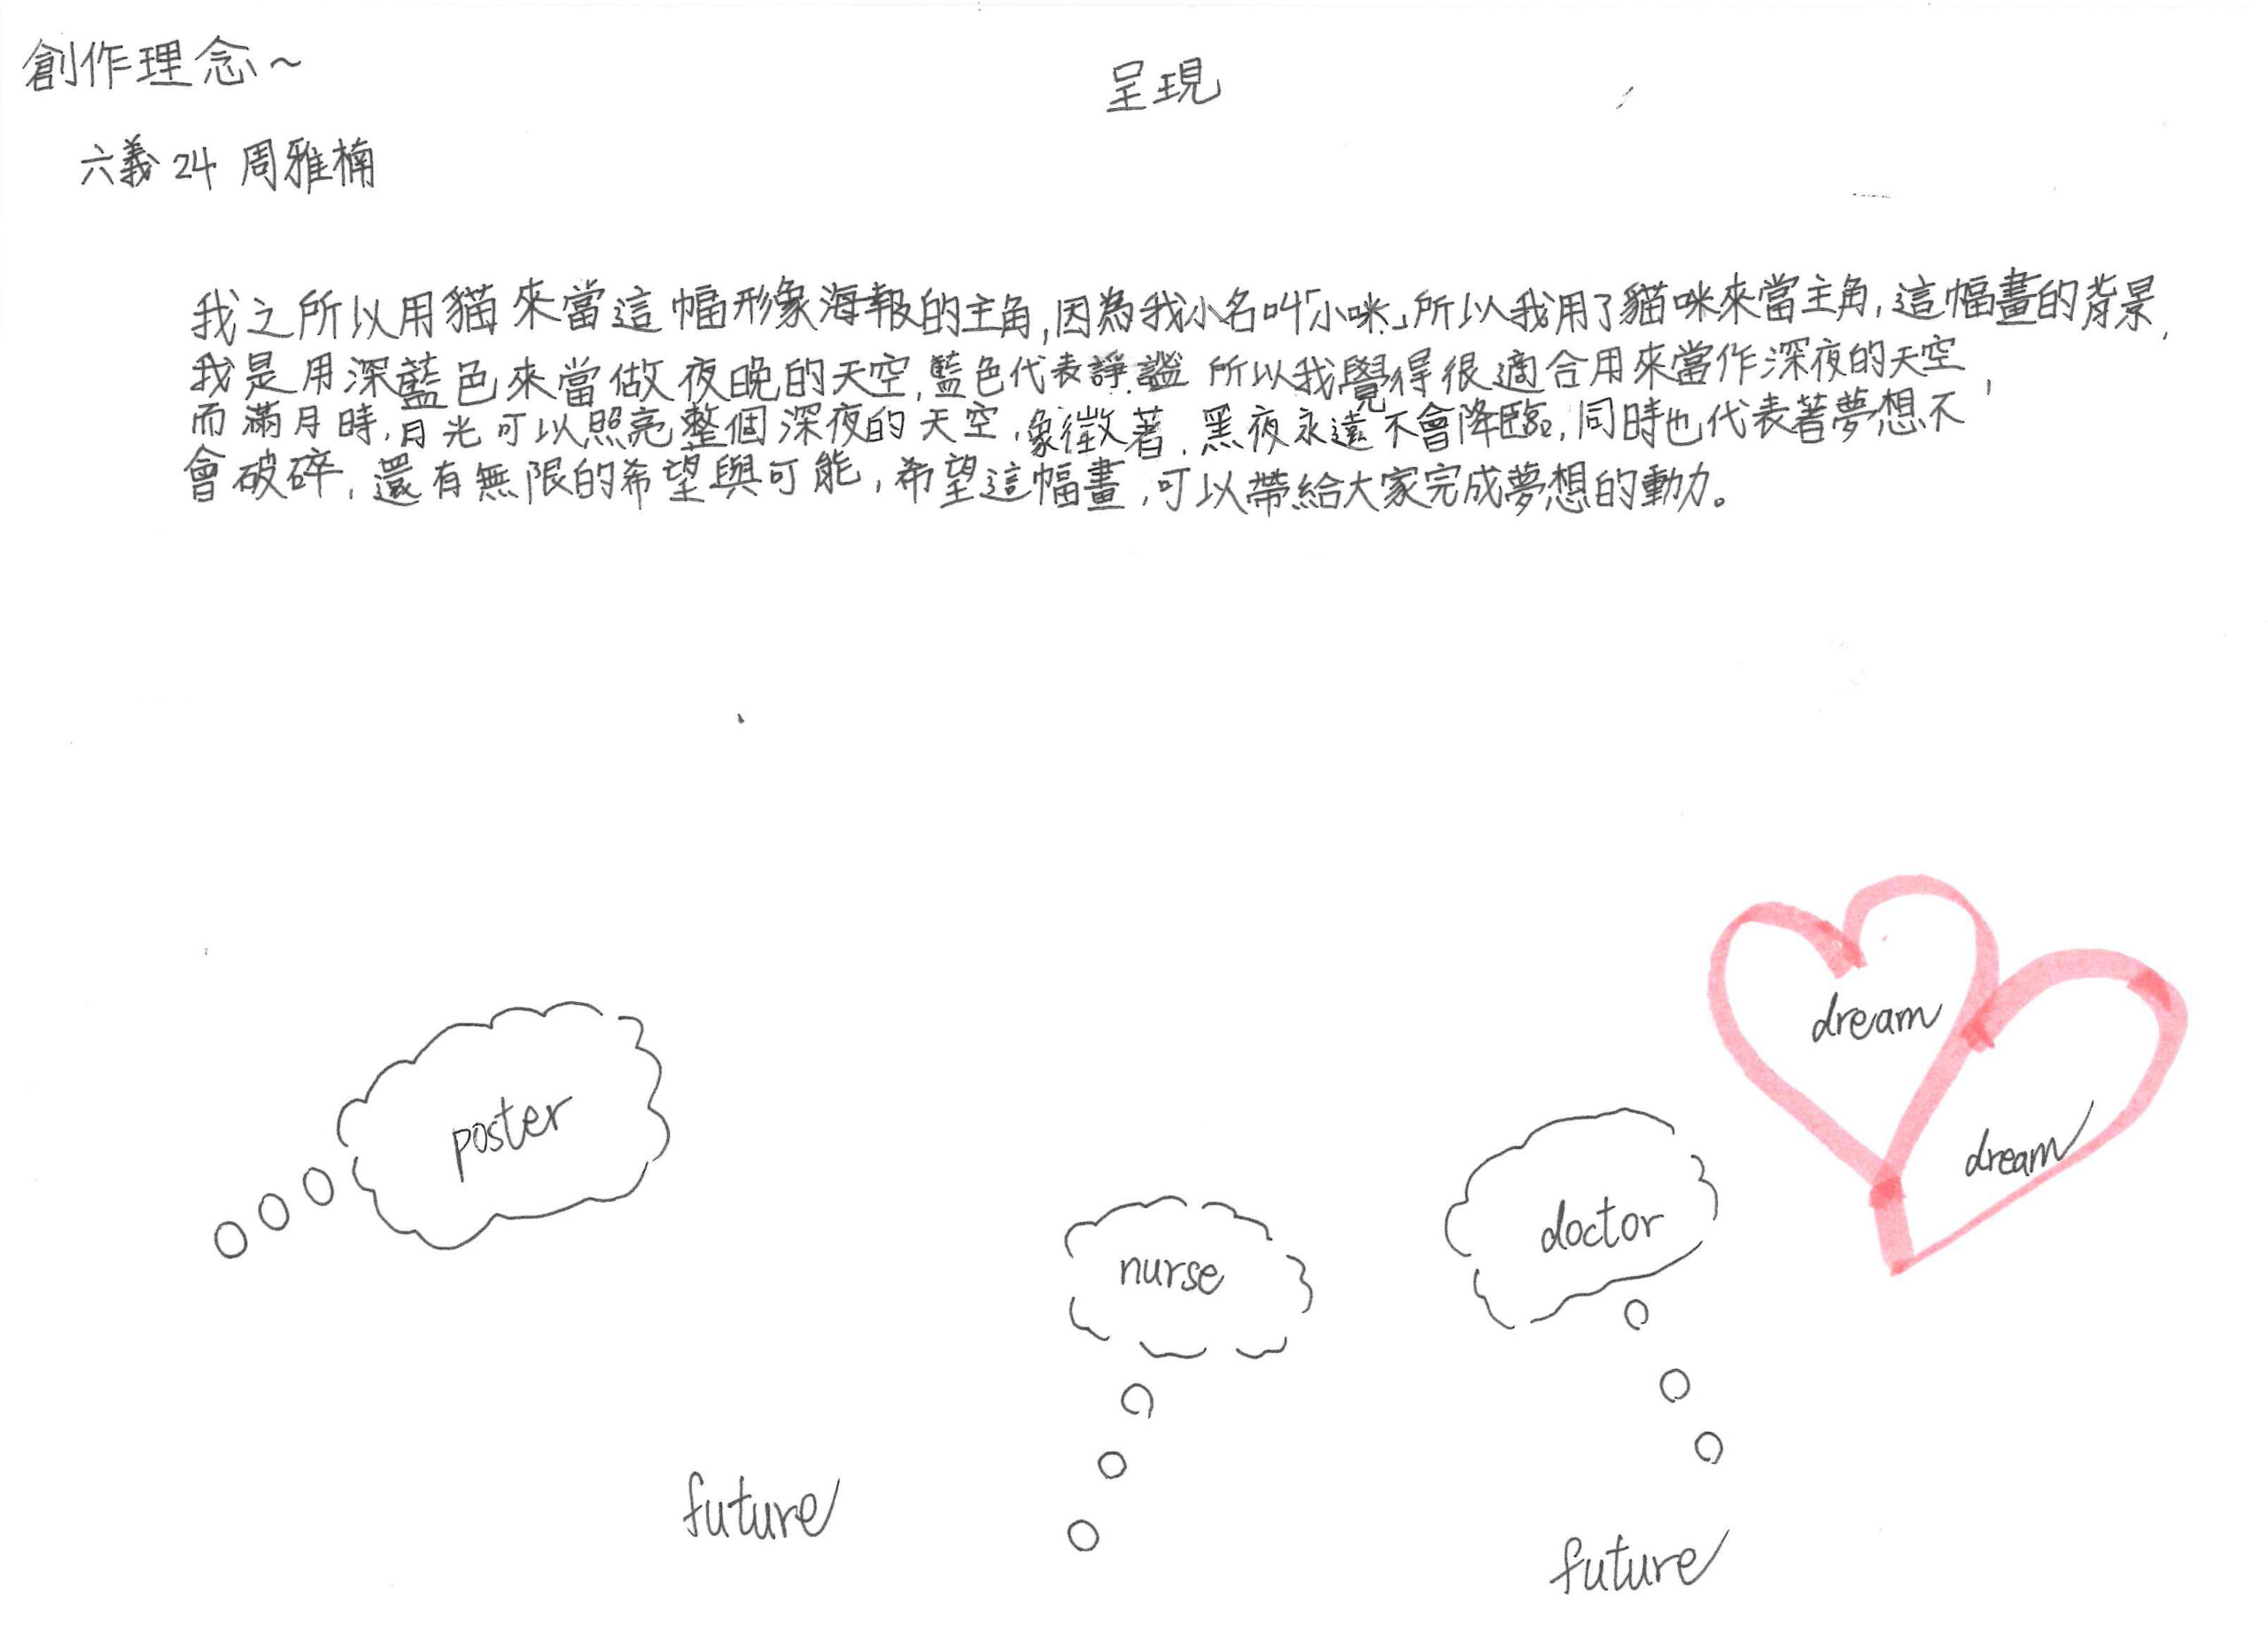 創作理念~
呈現
六義 24 周雅楠
我之所以用貓來當這幅形象海報的主角,因為我小名叫「小咪」所以我用了貓咪來當主角,這幅畫的背景,
我是用深藍色來當做夜晚的天空,藍色代表諍謐 所以我覺得很適合用來當作深夜的天空,
而滿月時,月光可以照亮整個深夜的天空,象徵著,黑夜永遠不會降臨,同時也代表著夢想不
會破碎,還有無限的希望與可能,希望這幅畫,可以帶給大家完成夢想的動力。
dream
poster
dream
doctor
nurse
future
future